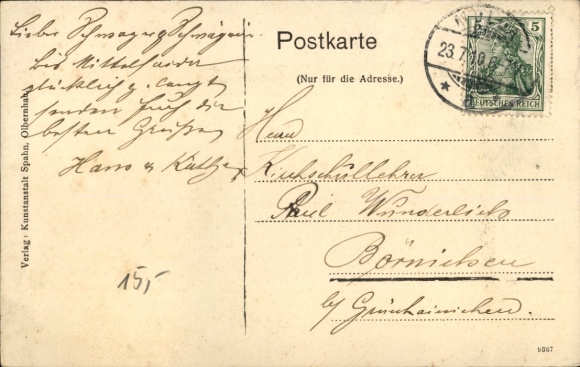 Lieber Schwager & Schwägerin
bis Mittel
glücklich g. langt
senden Euch die
besten Grüße
Hans & Käthe
Postkarte
(Nur für die Adresse.)
Herrn
Kirchschullehrer
Paul Wunderlich
Börnichen
b/ Grünhainichen.
15,-
Verlag: Kunstanstalt Spahn, Olbernhau.
23.7.10.
5 5
DEUTSCHES REICH
9367